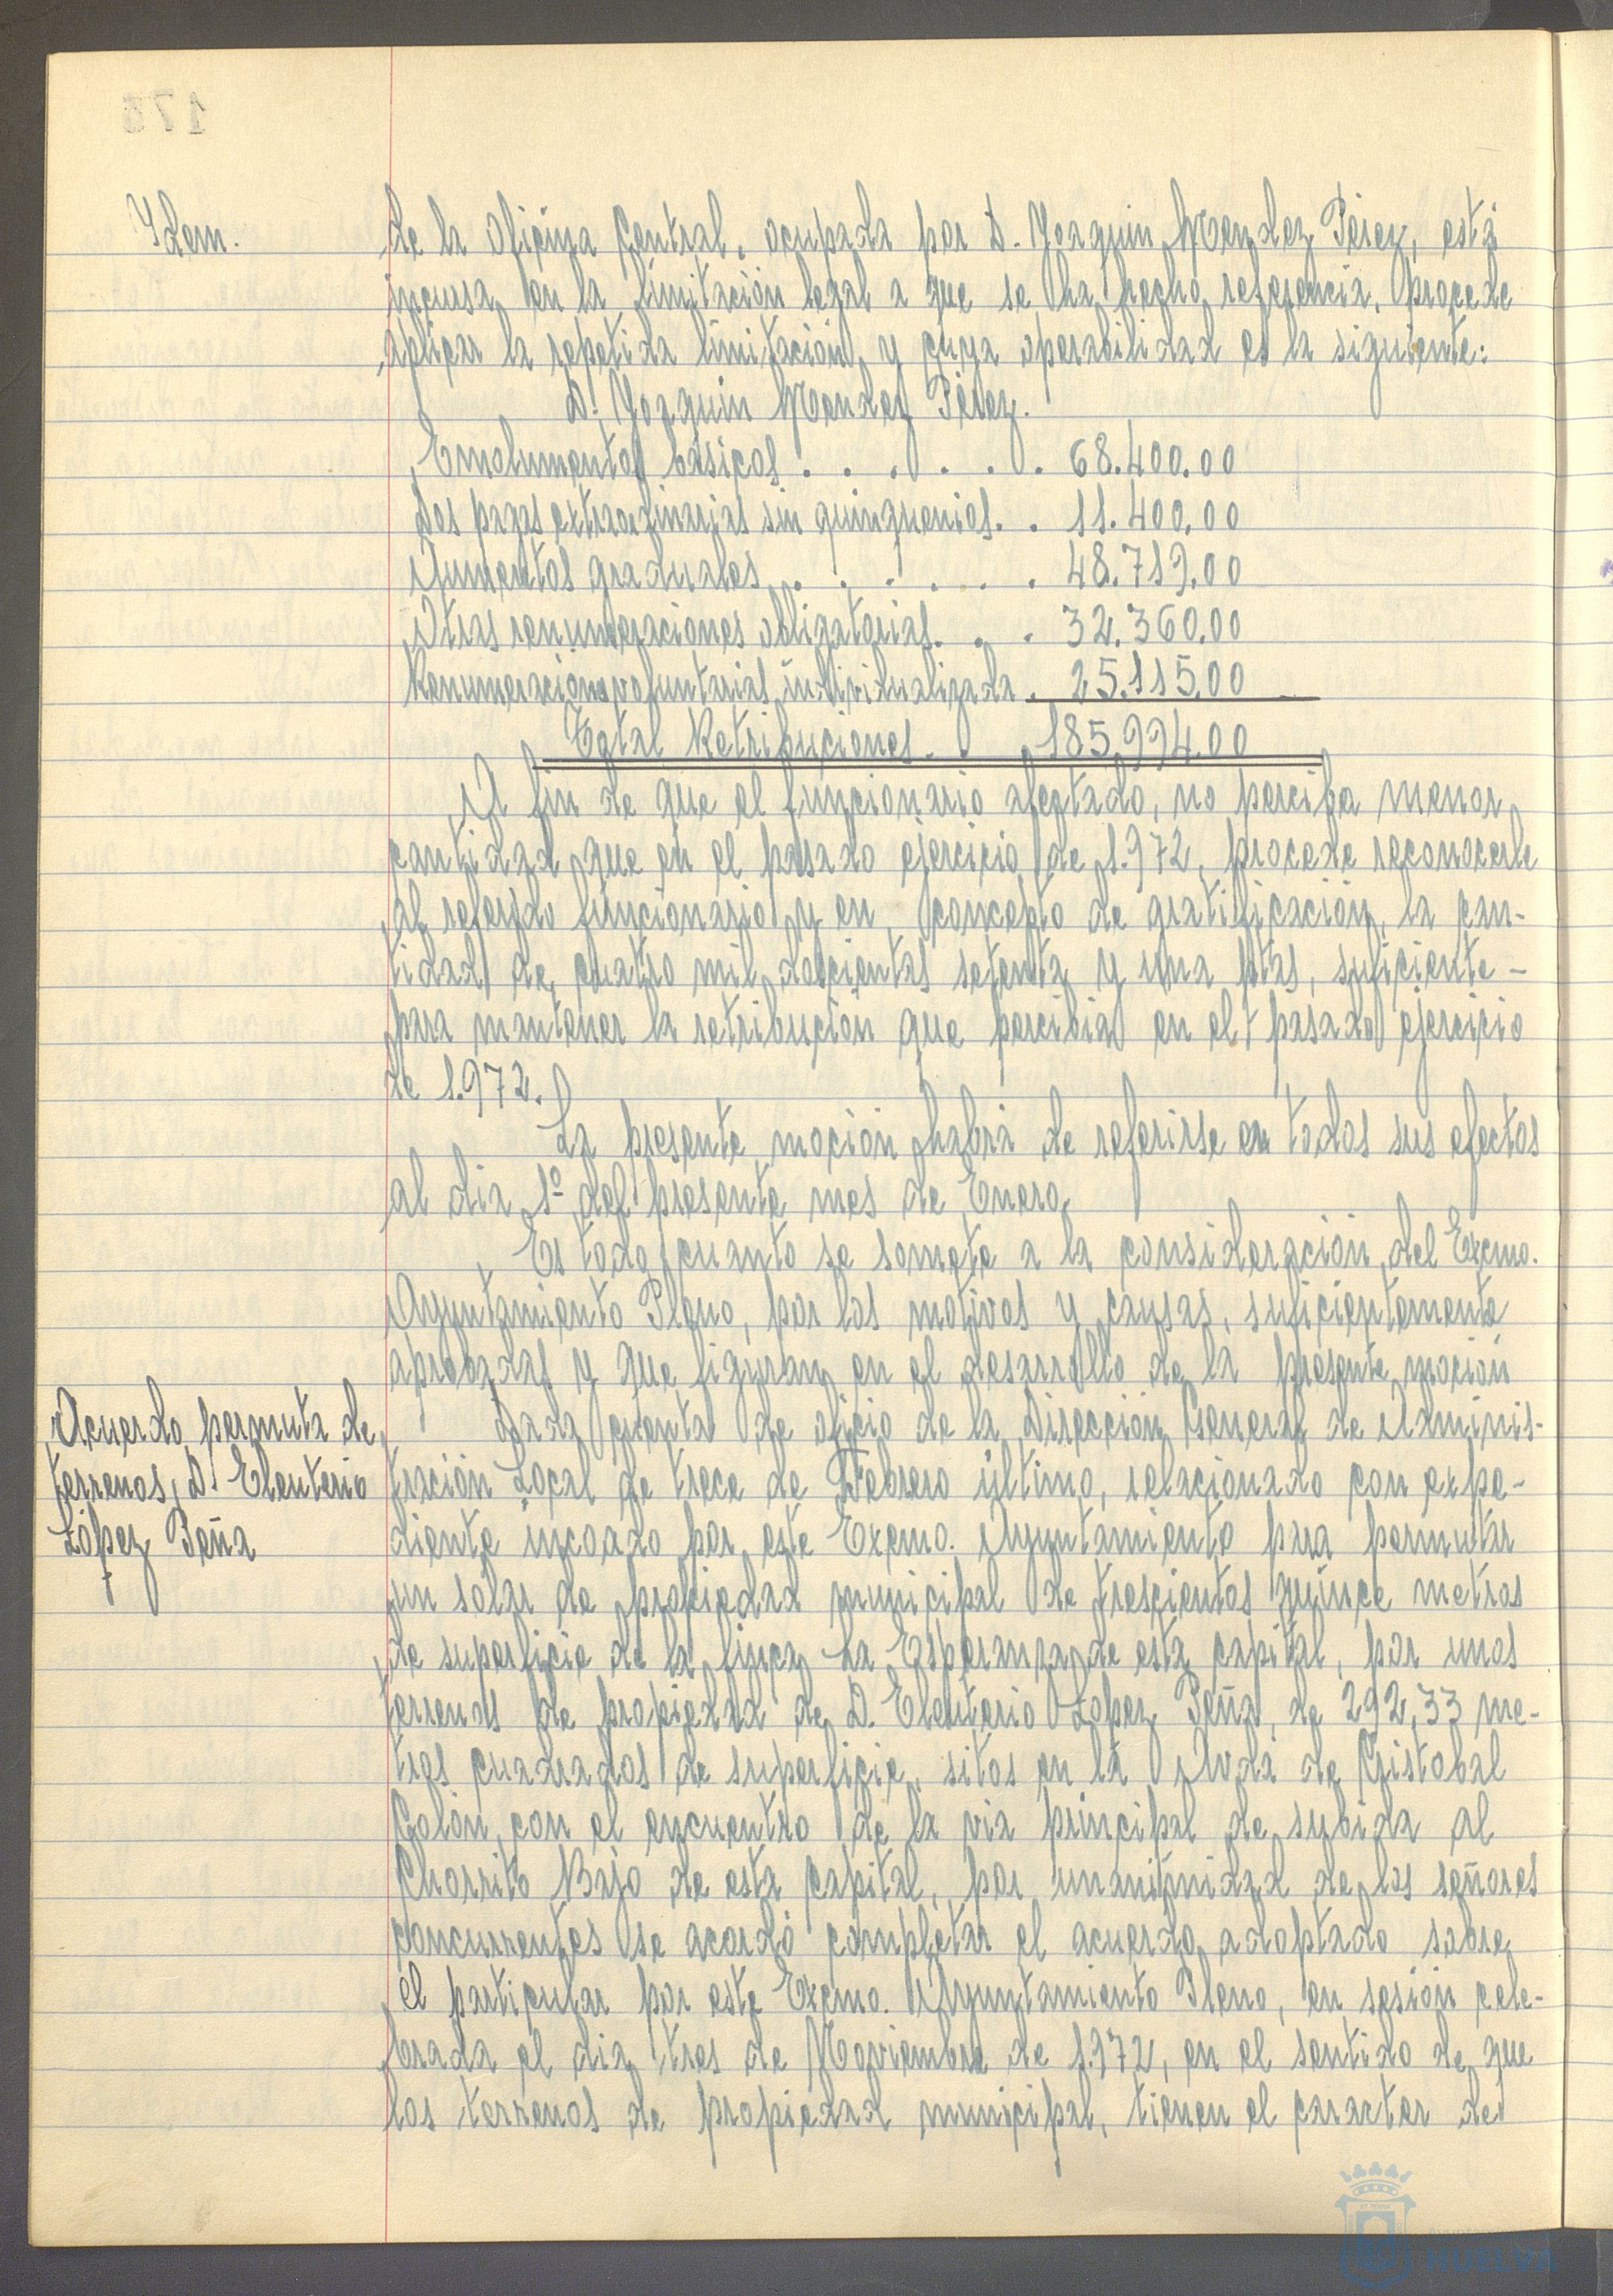 Idem.
de la oficina Central, ocupada por D. Joaquin Mendez Pérez, está
incursa en la limitación legal a que se ha hecho referencia, procede
aplicar la repetida limitación y cuya operabilidad es la siguiente:
D. Joaquin Mendez Pérez.
Emolumentos básicos . . . . . . 68.400.00
Dos pagas extraordinarias sin quinquenios. . 11.400,00
Aumentos graduales . . . . . . 48.719.00
Otras renumeraciones obligatorias. . . 32.360.00
Renumeraciones voluntarias individualizada . 25.115,00
Total Retribuciones. . 185.994.00
A fin de que el funcionario afectado, no perciba menor
cantidad que en el pasado ejercicio de 1.972, procede reconocerle
al referido funcionario y en concepto de gratificación, la can-
tidad de cuatro mil doscientas setenta y una ptas, suficiente -
para mantener la retribución que percibia en el pasado ejercicio
de 1.972.
La presente moción habrá de referirse en todos sus efectos
al dia 1º del presente mes de Enero.
Es todo cuanto se somete a la consideración del Excmo.
Ayuntamiento Pleno, por los motivos y causas, suficientemente
aprobadas y que figuran en el desarrollo de la presente moción
Acuerdo permuta de
terrenos, D. Eleuterio
López Peña
Dada cuenta de oficio de la Dirección General de Adminis-
tración Local de trece de Febrero último, relacionado con expe-
diente incoado por este Excmo. Ayuntamiento para permutar
un solar de propiedad municipal de trescientos quince metros
de superficie de la finca La Esperanza de esta capital, por unos
terrenos de propiedad de D. Eleuterio López Peña, de 292,33 me-
tros cuadrados de superficie, sitos en la Avda de Cristobal
Colón, con el encuentro de la via principal de subida al
Chorrito Bajo de esta capital, por unanimidad de los señores
concurrentes se acordó completar el acuerdo adoptado sobre
el particular por este Excmo. Ayuntamiento Pleno, en sesión cele-
brada el dia tres de Noviembre de 1.972, en el sentido de que
los terrenos de propiedad municipal, tienen el caracter de
HUELVA